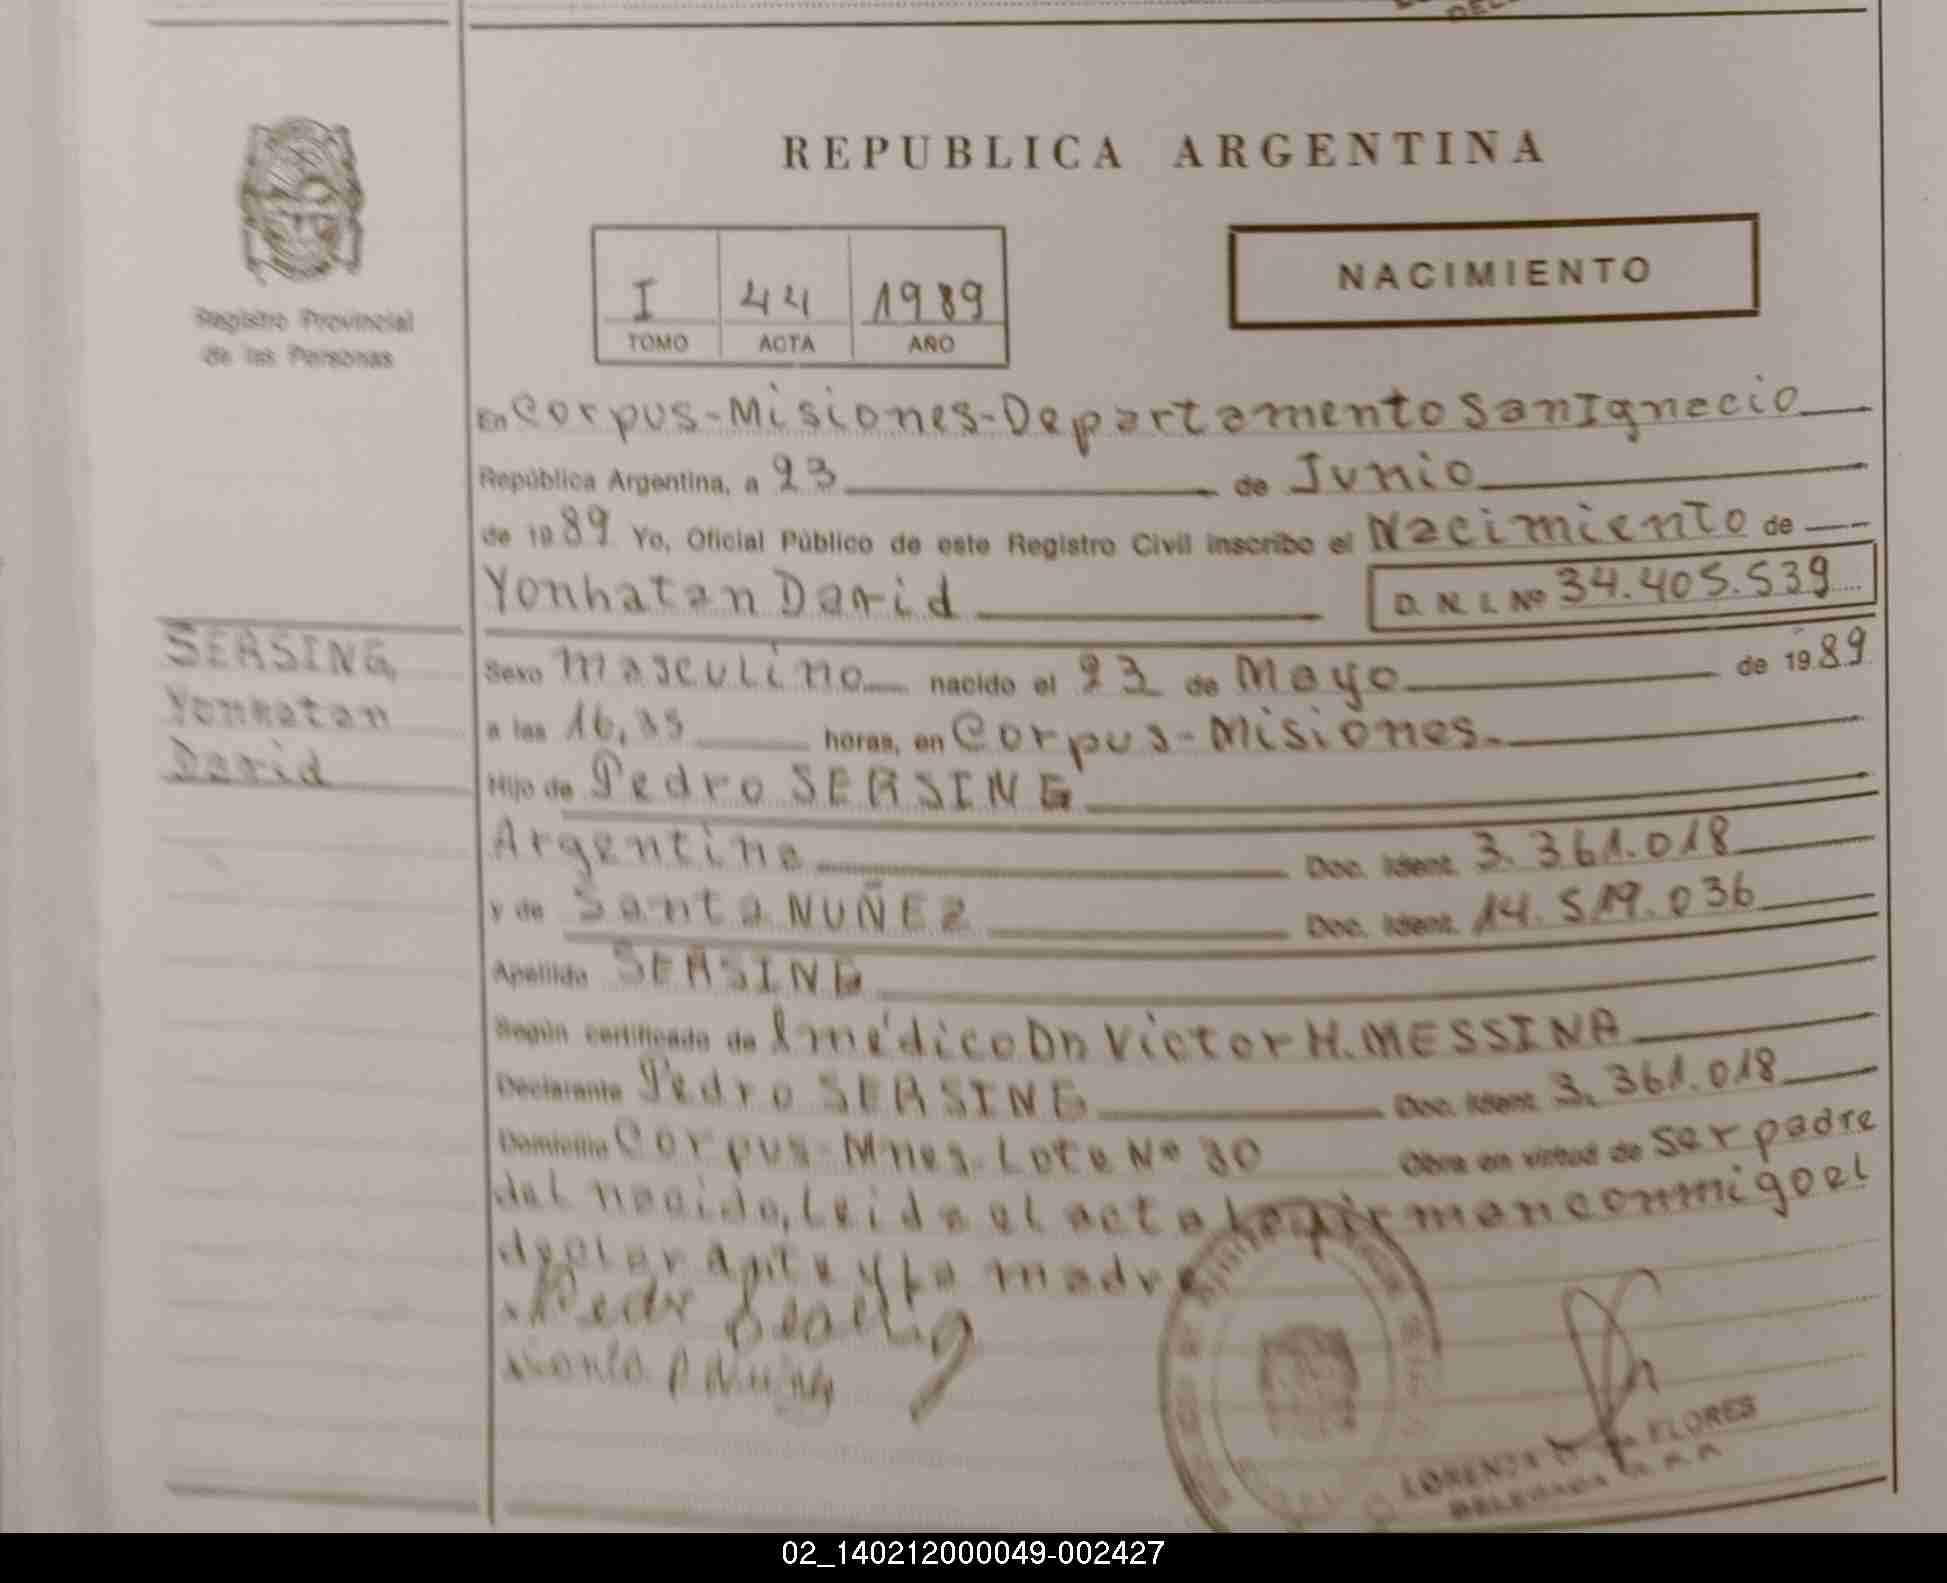 REPUBLICA ARGENTINA
Registro Provincial
de las Personas
I 44 1989
TOMO ACTA AÑO
NACIMIENTO
En Corpus-Misiones-Departamento San Ignacio
República Argentina, a 23 de Junio
de 1989 Yo, Oficial Público de este Registro Civil inscribo el Nacimiento de
Yonhatan David D. N. I. Nº 34.405.539
SEASING,
Yonhatan
David
Sexo masculino nacido el 23 de Mayo de 1989
a las 16,35 horas, en Corpus-Misiones.
Hijo de Pedro SEASING
Argentino Doc. Ident. 3.361.018
y de Santa NUÑEZ Doc. Ident. 14.519.036
Apellido SEASING
Según certificado de l médico Dn Victor H. MESSINA
Declarante Pedro SEASING Doc. Ident. 3.361.018
Domicilio Corpus-Mnes. Lote Nº 30 Obra en virtud de ser padre
del nacido, Leida el acta la firman conmigo el
declarante y la madre
LORENZA FLORES
DELEGADA
02_140212000049-002427